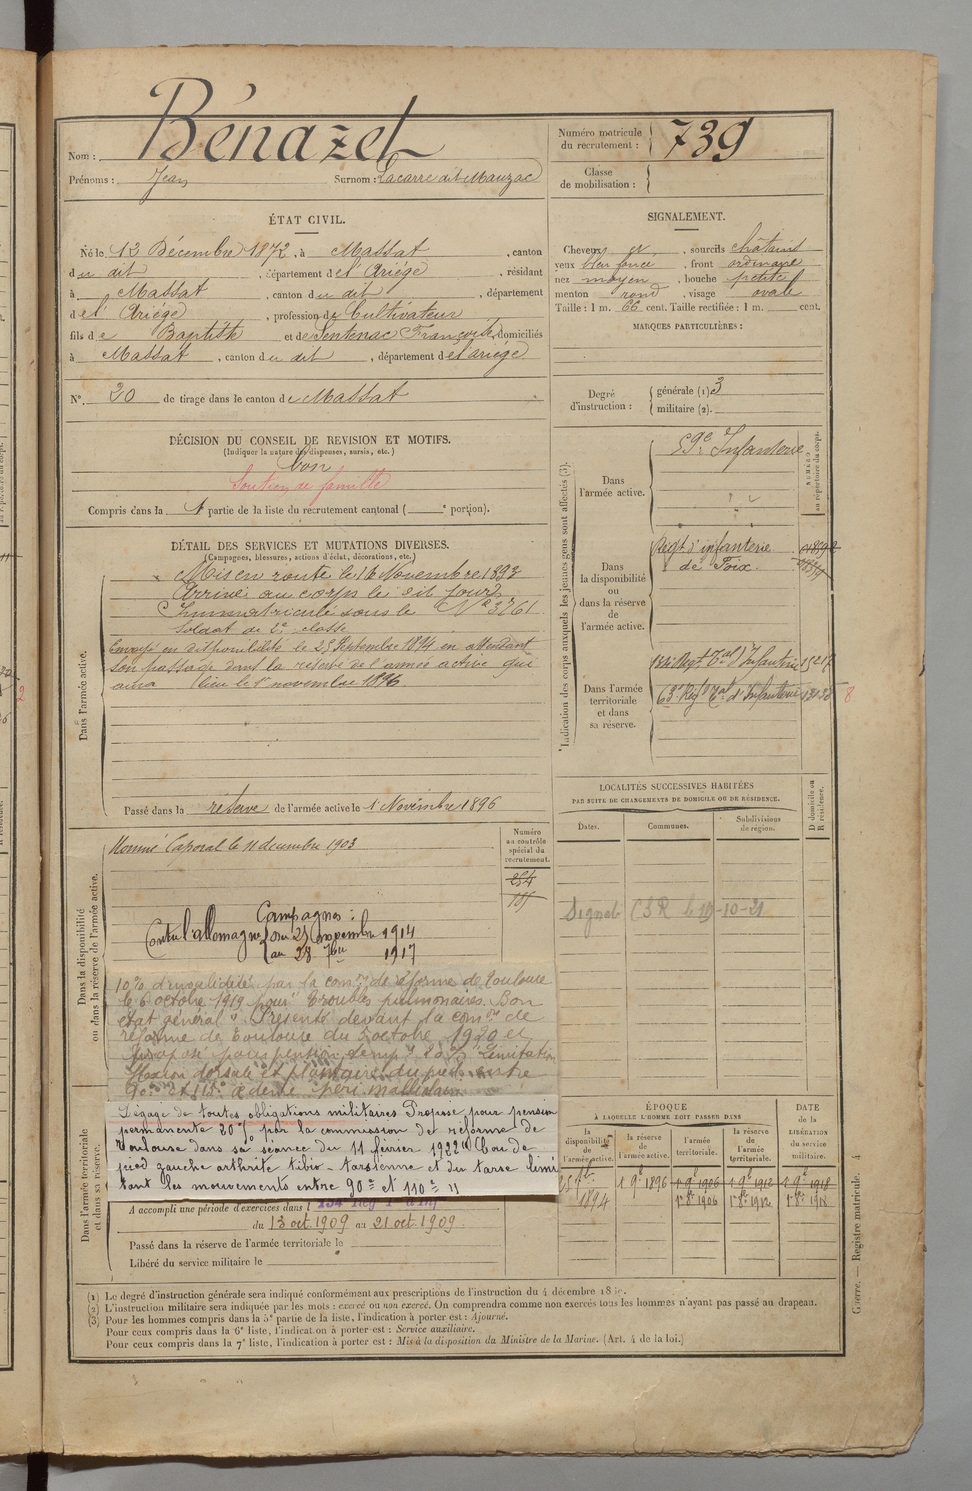 Nom : Bénazet
Prénoms : Jean Surnom : Lacarre dit Mauzac
Numéro matricule du recrutement : 739
Classe de mobilisation :
ÉTAT CIVIL.
Né le 12 Décembre 1872, à Massat, canton
du dit, département de l'Ariège, résidant
à Massat, canton du dit, département
de l'Ariège, profession de Cultivateur
fils de Baptiste et de Sentenac Françoise, domiciliés
à Massat, canton du dit, département de l'ariège
N° 20 de tirage dans le canton de Massat
SIGNALEMENT.
Cheveux et, sourcils châtains
yeux bleu foncé, front ordinaire
nez moyen, bouche petite
menton rond, visage ovale
Taille : 1 m. 66 cent. Taille rectifiée : 1 m. cent.
MARQUES PARTICULIÈRES :
Degré d'instruction : générale (1) 3
militaire (2).
DÉCISION DU CONSEIL DE REVISION ET MOTIFS.
(Indiquer la nature des dispenses, sursis, etc.)
bon
Soutien de famille
Compris dans la 1 partie de la liste du recrutement cantonal ( e portion).
DÉTAIL DES SERVICES ET MUTATIONS DIVERSES.
(Campagnes, blessures, actions d'éclat, décorations, etc.)
Dans l'armée active.
Mis en route le 16 Novembre 1893
Arrivé au corps le dit jour
Immatriculé sous le N° 3761
Soldat de 2e classe
Envoyé en disponibilité le 25 Septembre 1894 en attendant
son passage dans la réserve de l'armée active qui
aura lieu le 1er novembre 1896
Passé dans la réserve de l'armée active le 1 Novembre 1896
Dans la disponibilité ou dans la réserve de l'armée active.
Nommé Caporal le 11 décembre 1903
Numéro au contrôle spécial du recrutement.
Campagnes :
Contre l'allemagne du 25 novembre 1914
au 28 7bre 1917
10% d'invalidité par la comon de réforme de Toulouse
le 6 octobre 1919 pour "troubles pulmonaires. Bon
état général". Présenté devant la comon de
réforme de Toulouse du 5 octobre 1920 et
proposé pour pension temp. 20% "Limitation
flexion dorsale et plantaire du pied entre
90° et 115° œdème péri malléolaire
Dans l'armée territoriale et dans sa réserve.
Dégagé de toutes obligations militaires Proposé pour pension
permanente 20% par la commission de réforme de
Toulouse dans sa séance du 11 février 1922 "Cou de
pied gauche arthrite tibio-tarsienne et du tarse limi
tant les mouvements entre 90° et 110° "
A accompli une période d'exercices dans l
du 13 oct 1909 au 21 oct 1909.
Passé dans la réserve de l'armée territoriale le
Libéré du service militaire le
Indication des corps auxquels les jeunes gens sont affectés (3).
NUMÉRO au répertoire du corps.
Dans l'armée active.
59e Infanterie
Dans la disponibilité ou dans la réserve de l'armée active.
Régt d'infanterie
de Foix.
Dans l'armée territoriale et dans sa réserve.
134e Régt Tal d'Infanterie
63e Régt Tal d'Infanterie
8
LOCALITÉS SUCCESSIVES HABITÉES
PAR SUITE DE CHANGEMENTS DE DOMICILE OU DE RÉSIDENCE.
Dates. Communes. Subdivisions de région. D domicile ou R résidence.
Signal. CSR le 19-10-21
ÉPOQUE
À LAQUELLE L'HOMME DOIT PASSER DANS
la disponibilité de l'armée active. la réserve de l'armée active. l'armée territoriale. la réserve de l'armée territoriale.
DATE DE LA LIBÉRATION du service militaire.
1894 1 9e 1896 1 9e 1906 1 9e 1912 1 9e 1918
1er 8e 1906 1er 8e 1912 1er 8e 1918
(1) Le degré d'instruction générale sera indiqué conformément aux prescriptions de l'instruction du 4 décembre 18
(2) L'instruction militaire sera indiquée par les mots : exercé ou non exercé. On comprendra comme non exercés tous les hommes n'ayant pas passé au drapeau.
(3) Pour les hommes compris dans la 5e partie de la liste, l'indication à porter est : Ajourné.
Pour ceux compris dans la 6e liste, l'indication à porter est : Service auxiliaire.
Pour ceux compris dans la 7e liste, l'indication à porter est : Mis à la disposition du Ministre de la Marine. (Art. 4 de la loi.)
Guerre. — Registre matricule. 4